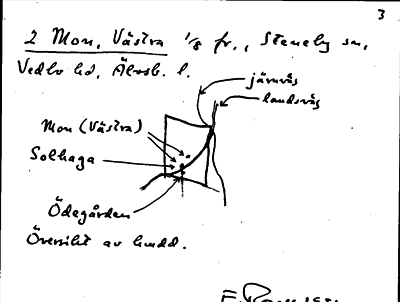 3
2 Mon, Västra 1/8 fr., Steneby sn,
Vedbo hd, Älvsb. l.
järnväg
landsväg
Mon (Västra)
Solhaga
Ödegården
Översikt av hmdd.